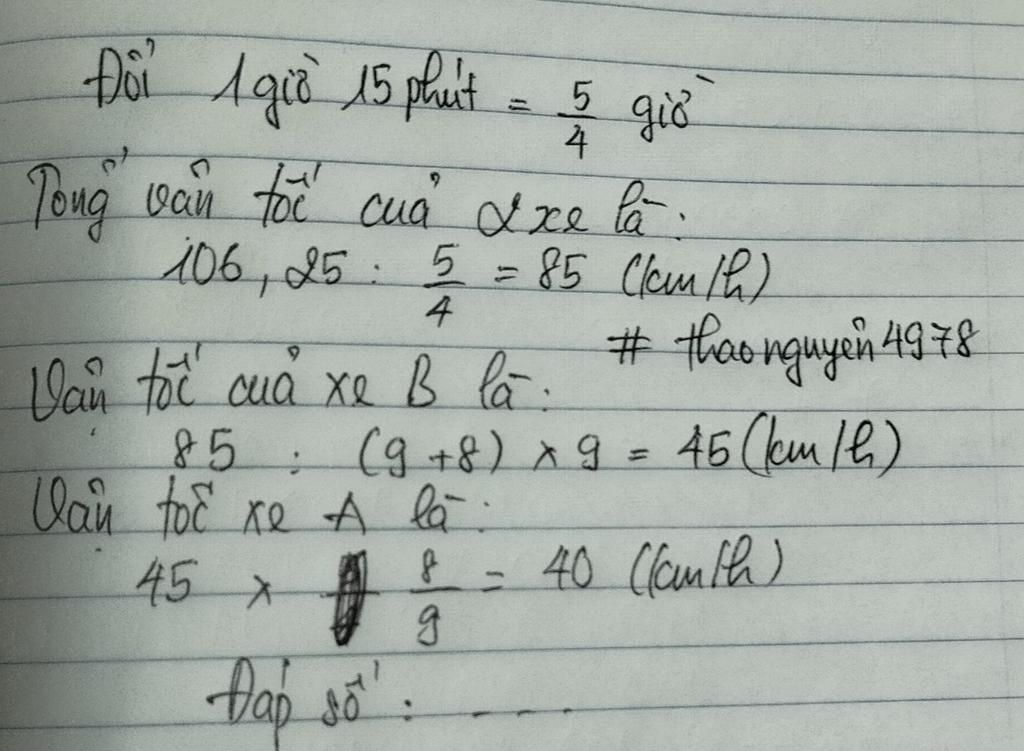 Đổi 1 giờ 15 phút = 5/4 giờ
Tổng vận tốc của 2 xe là:
106,25 : 5/4 = 85 (km/h)
# thaonguyên4978
Vận tốc của xe B là:
85 : (9+8) x 9 = 45 (km/h)
Vận tốc xe A là:
45 x 8/9 = 40 (km/h)
Đáp số : ----